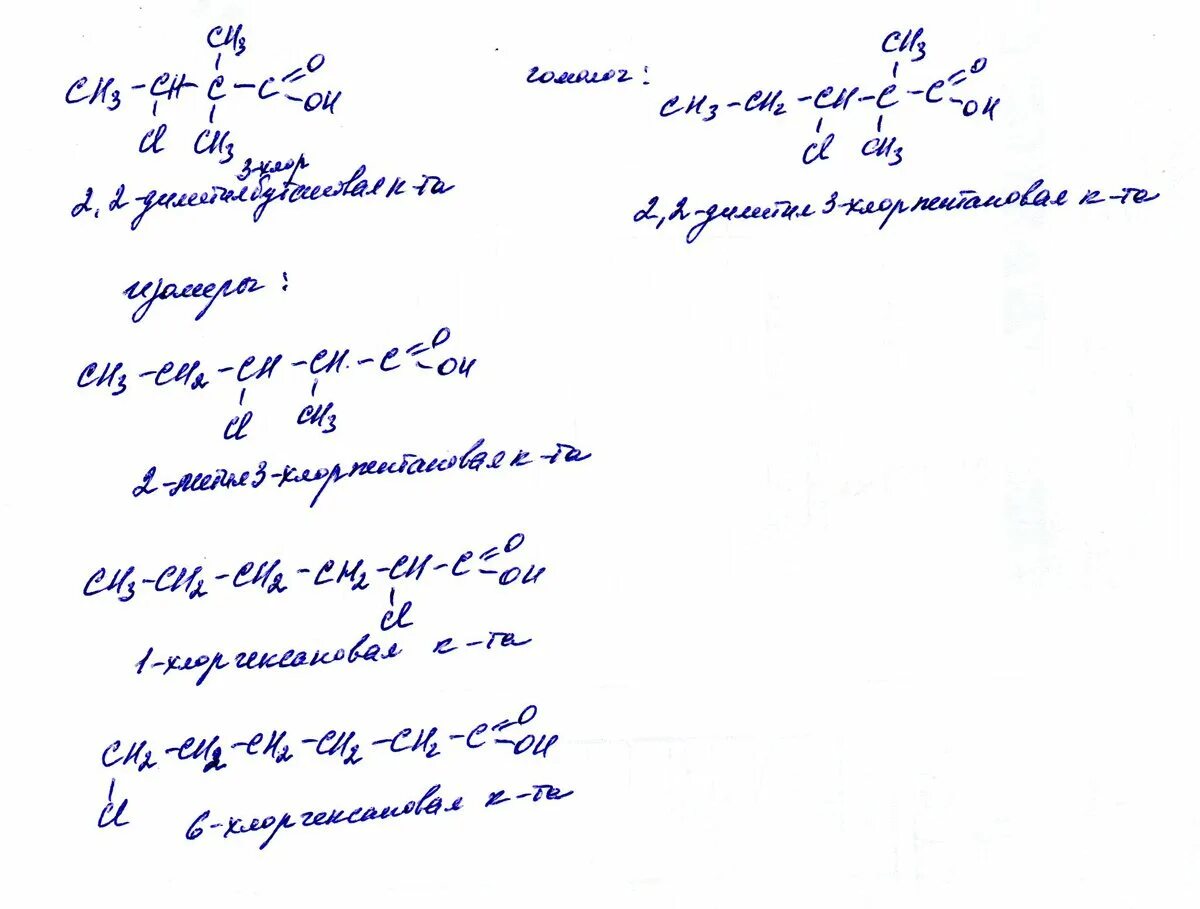 CH3
CH3 – CH – C – C = O
– OH
Cl CH3
3-хлор
2,2-диметилбутановая к-та
гомолог:
CH3
CH3 – CH2 – CH – C – C = O
– OH
Cl CH3
2,2-диметил 3-хлорпентановая к-та
изомеры:
CH3 – CH2 – CH – CH – C = O
– OH
Cl CH3
2-метил 3-хлорпентановая к-та
CH3 – CH2 – CH2 – CH2 – CH – C = O
– OH
Cl
1-хлоргексановая к-та
CH2 – CH2 – CH2 – CH2 – CH2 – C = O
– OH
Cl
6-хлоргексановая к-та